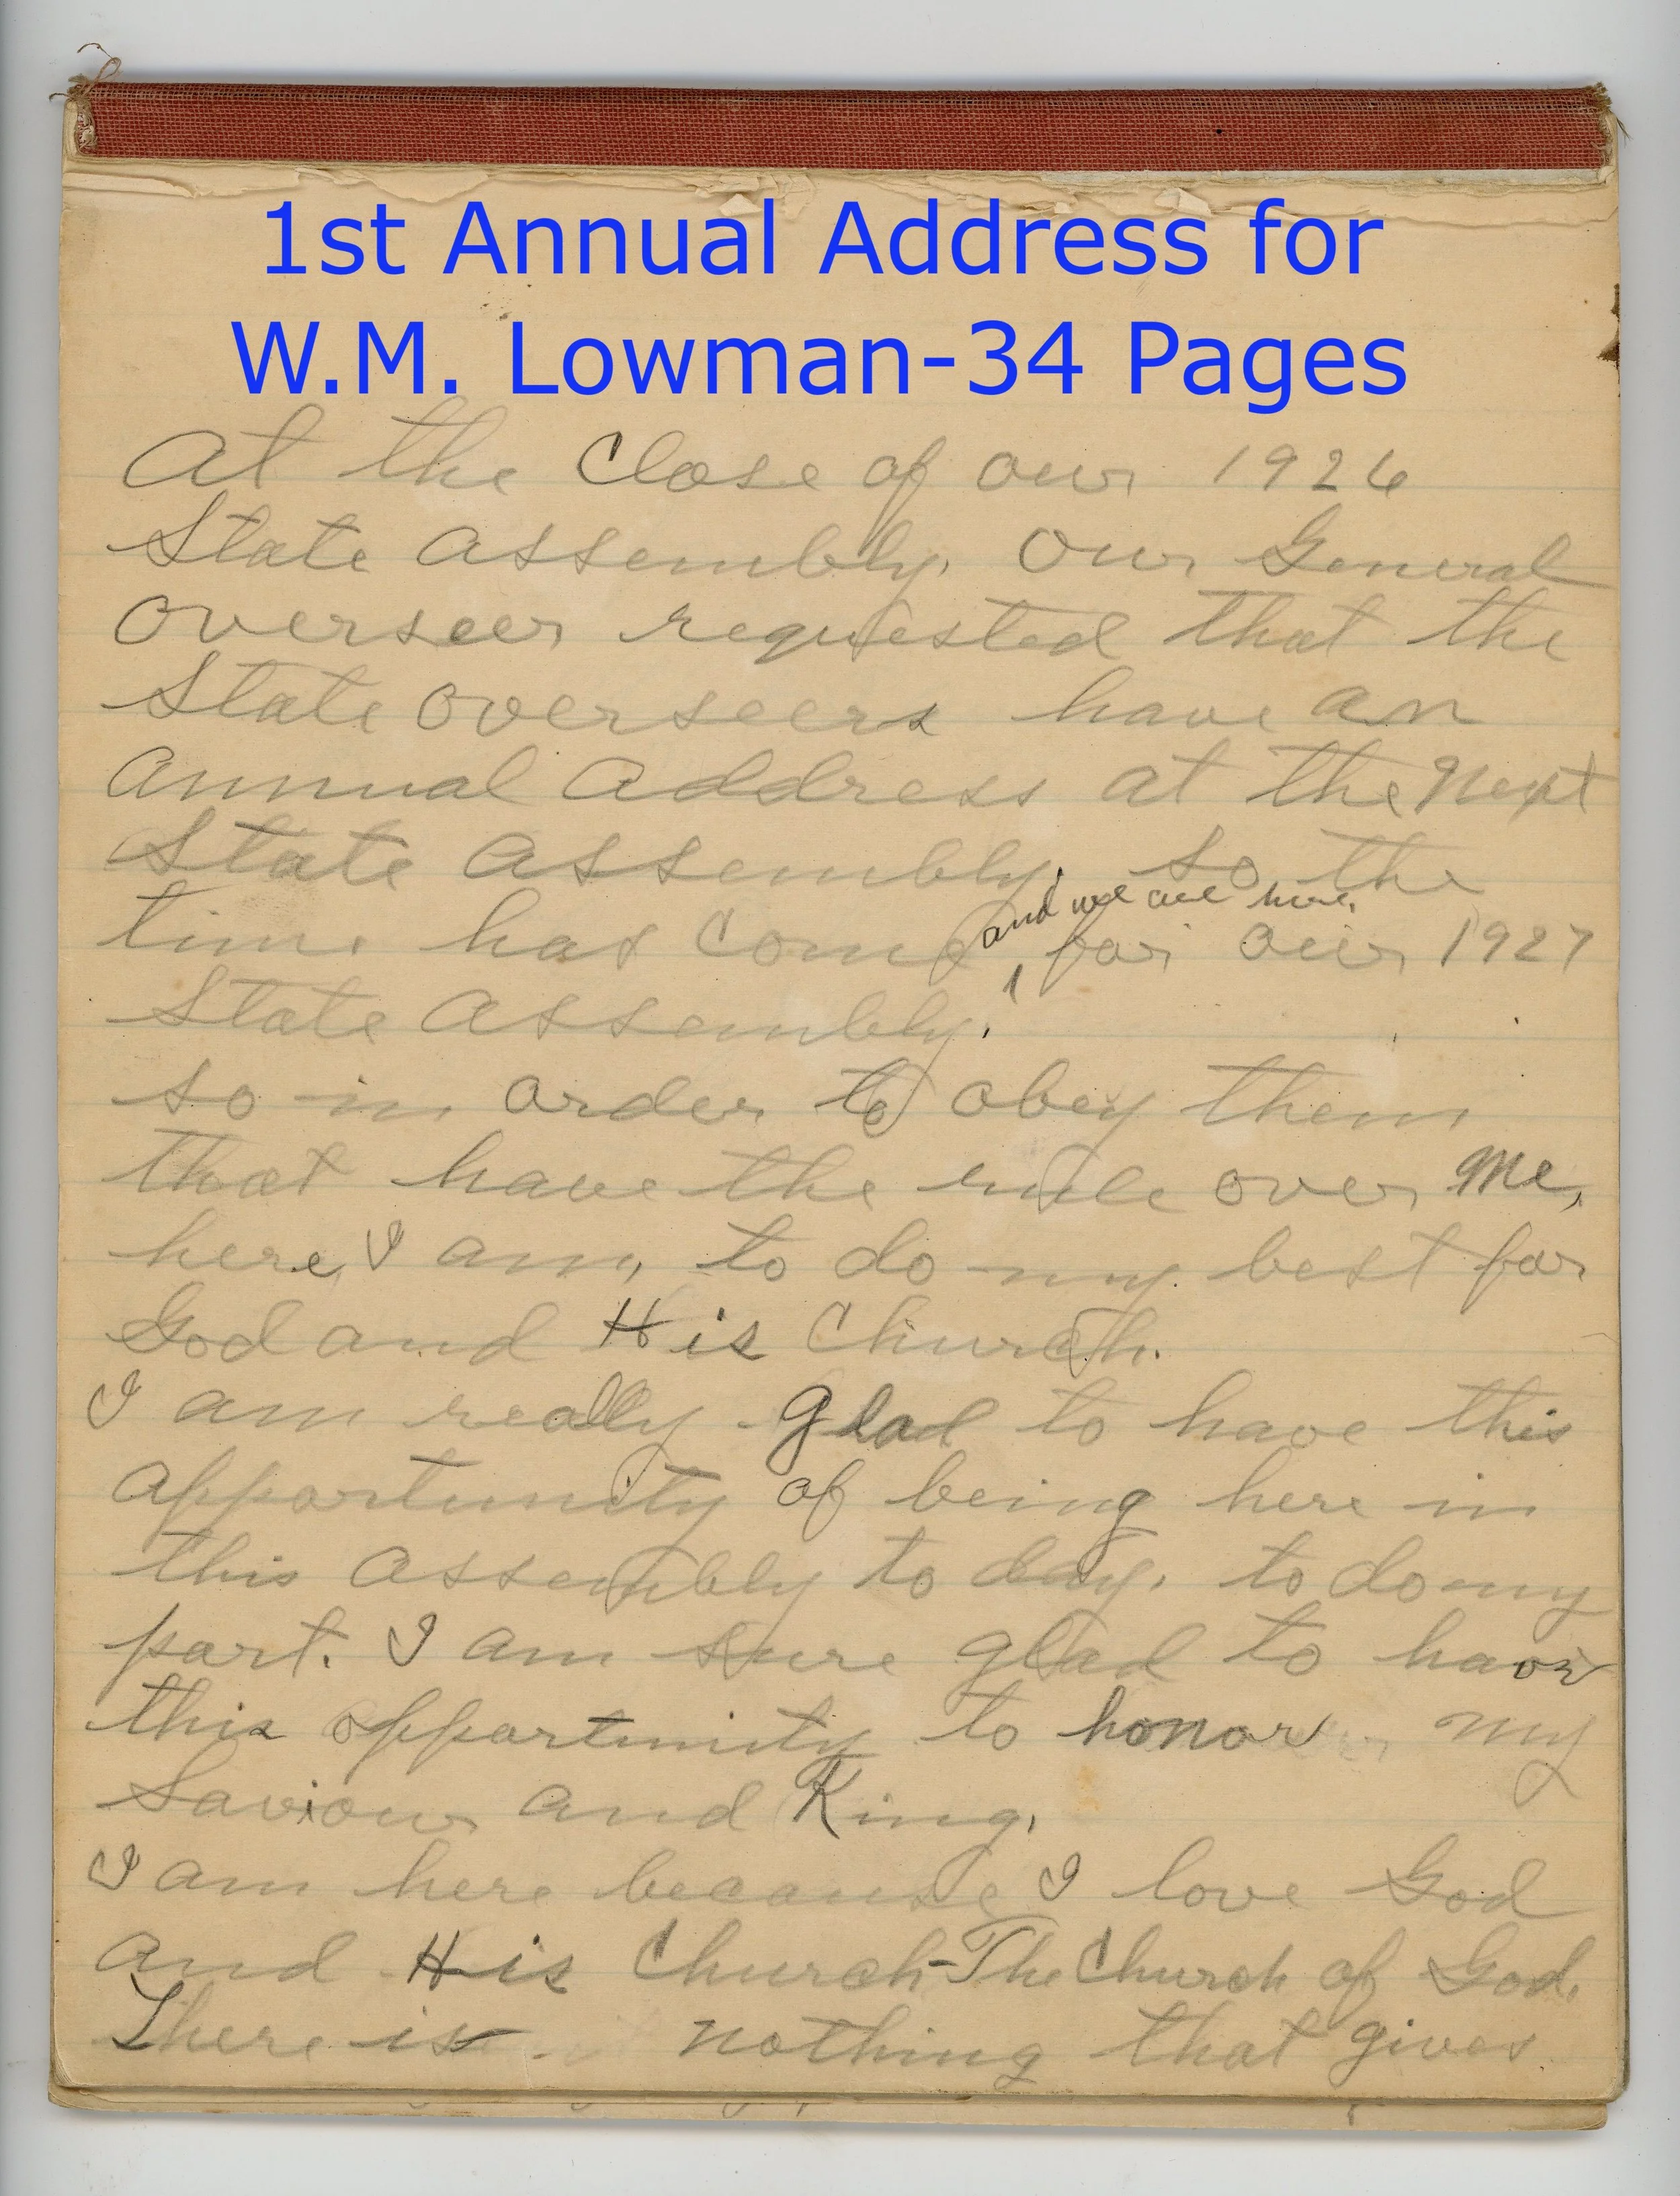 1st Annual Address for
W.M. Lowman-34 Pages
At the Close of our 1926
State Assembly. Our General
Overseer requested that the
State Overseers have an
Annual Address at the Next
State Assembly. So the
and we are here
time has come for our 1927
State Assembly.
So in order to obey them
that have the rule over Me,
here, I am, to do my best for
God and His Church.
I am really Glad to have this
opportunity of being here in
this Assembly to day, to do my
part. I am sure glad to have
this opportunity to honor my
Saviour and King.
I am here because I love God
and His Church-The Church of God.
There is nothing that gives